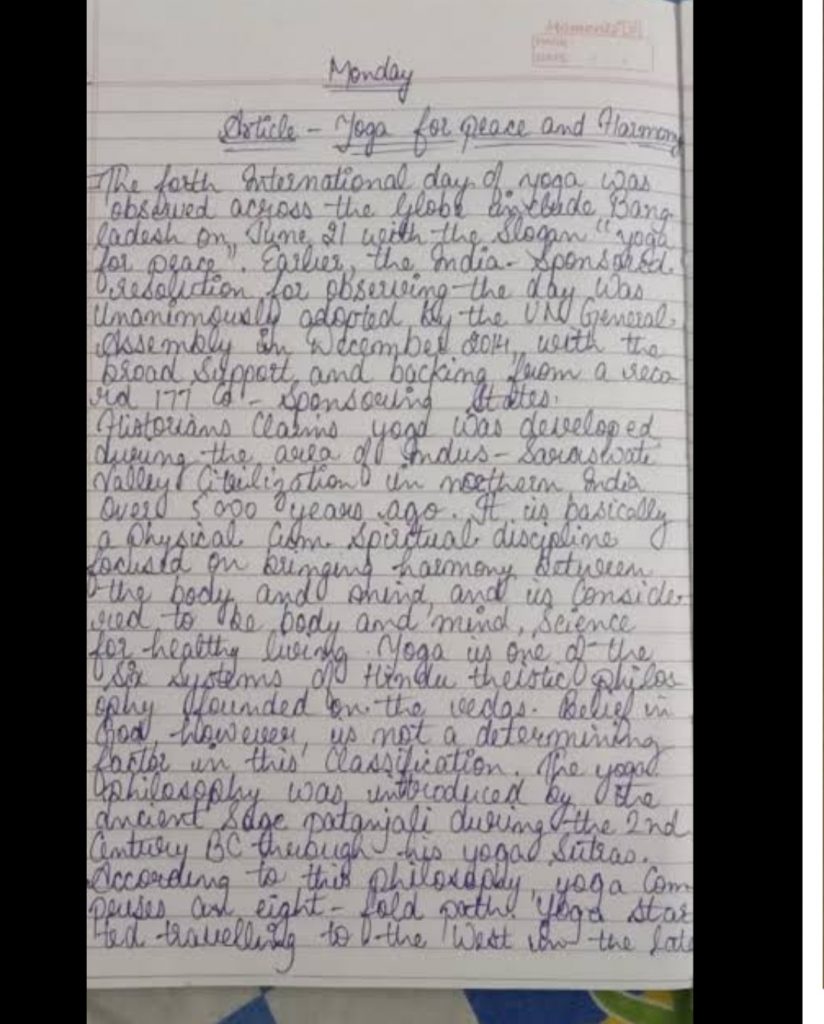 Monday
Article - Yoga for peace and Harmony
The forth International day of yoga was
observed across the globe include Bang
ladesh on June 21 with the Slogan "yoga
for peace". Earlier, the India-Sponsored
resolution for observing the day was
Unanimously adopted by the UN General
Assembly in December 2014, with the
broad Support and backing from a reco
rd 177 Co-Sponsouring States.
Historians Claims yoga was developed
during the area of Indus-Saraswati
Valley Civilization in northern India
Over 5000 years ago. It is basically
a Physical Cum Spiritual discipline
focused on bringing harmony between
the body and mind, and is Conside
red to be body and mind, Science
for healthy living. Yoga is one of the
Six Systems of Hindu theistic philos
ophy founded on the vedas. Belief in
God, however, is not a determining
factor in this Classification. The yoga
philosophy was introduced by the
ancient Sage patanjali during the 2nd
Century BC through his yoga Sutras.
According to this philosophy, yoga Com
prises an eight-fold path. Yoga Star
ted travelling to the West in the late